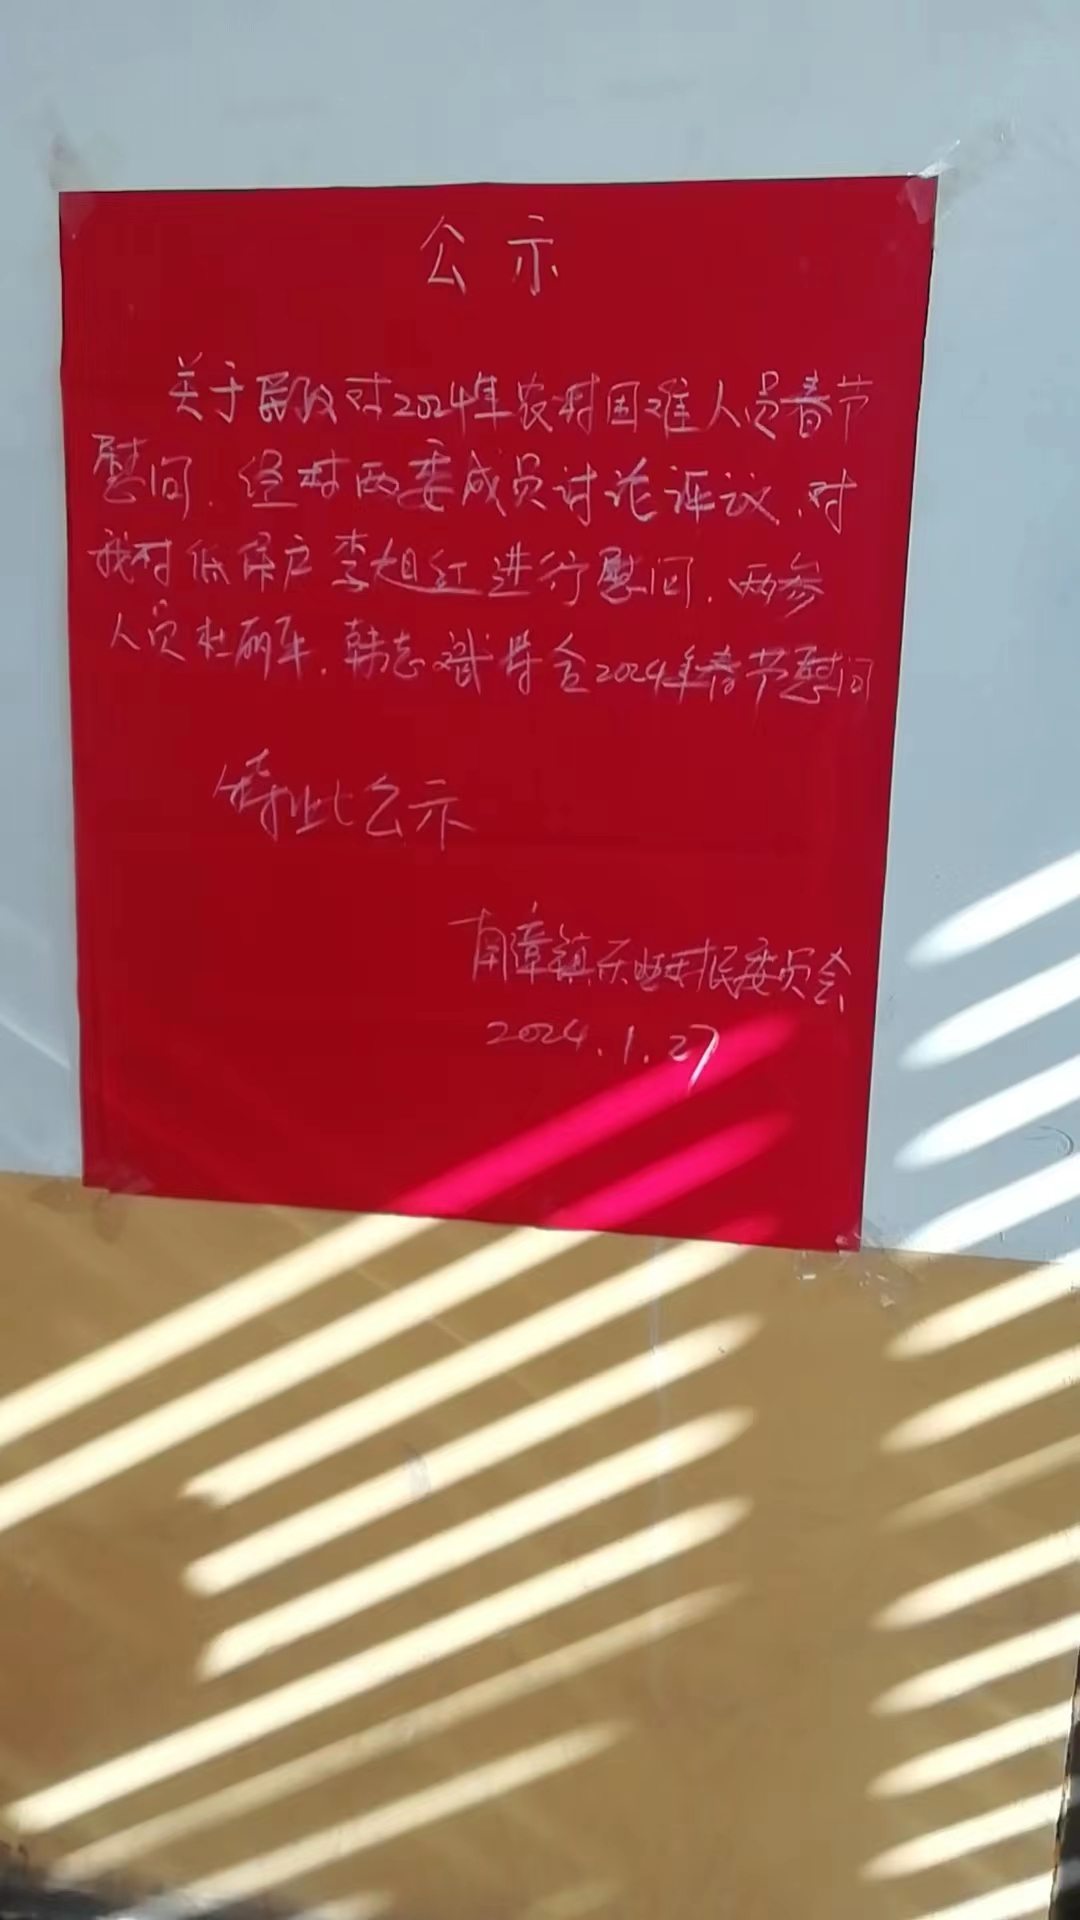 公示
关于县政对2024年农村困难人员春节
慰问.经村两委成员讨论评议,对
我村低保户李旭红进行慰问.两参
人员杜丽军.韩志斌符合2024年春节慰问
特此公示
南漳镇庆 村民委员会
2024.1.27